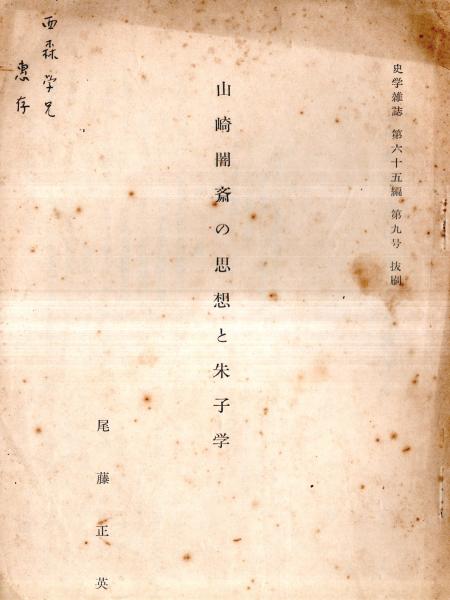 史学雑誌 第六十五編 第九号 抜刷
山崎闇斎の思想と朱子学
尾藤正英
西森学兄
恵存